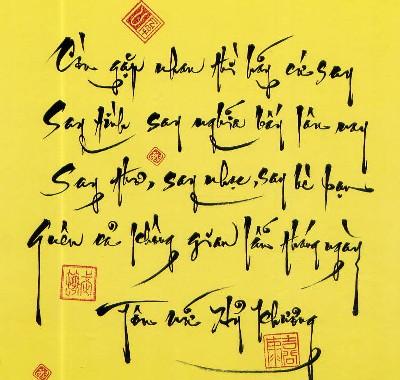 Còn gặp nhau thì hãy cứ say
Say tình say nghĩa bấy lâu nay
Say thơ, say nhạc, say bè bạn
Quên cả không gian lẫn tháng ngày
Tôn Nữ Hỷ Khương